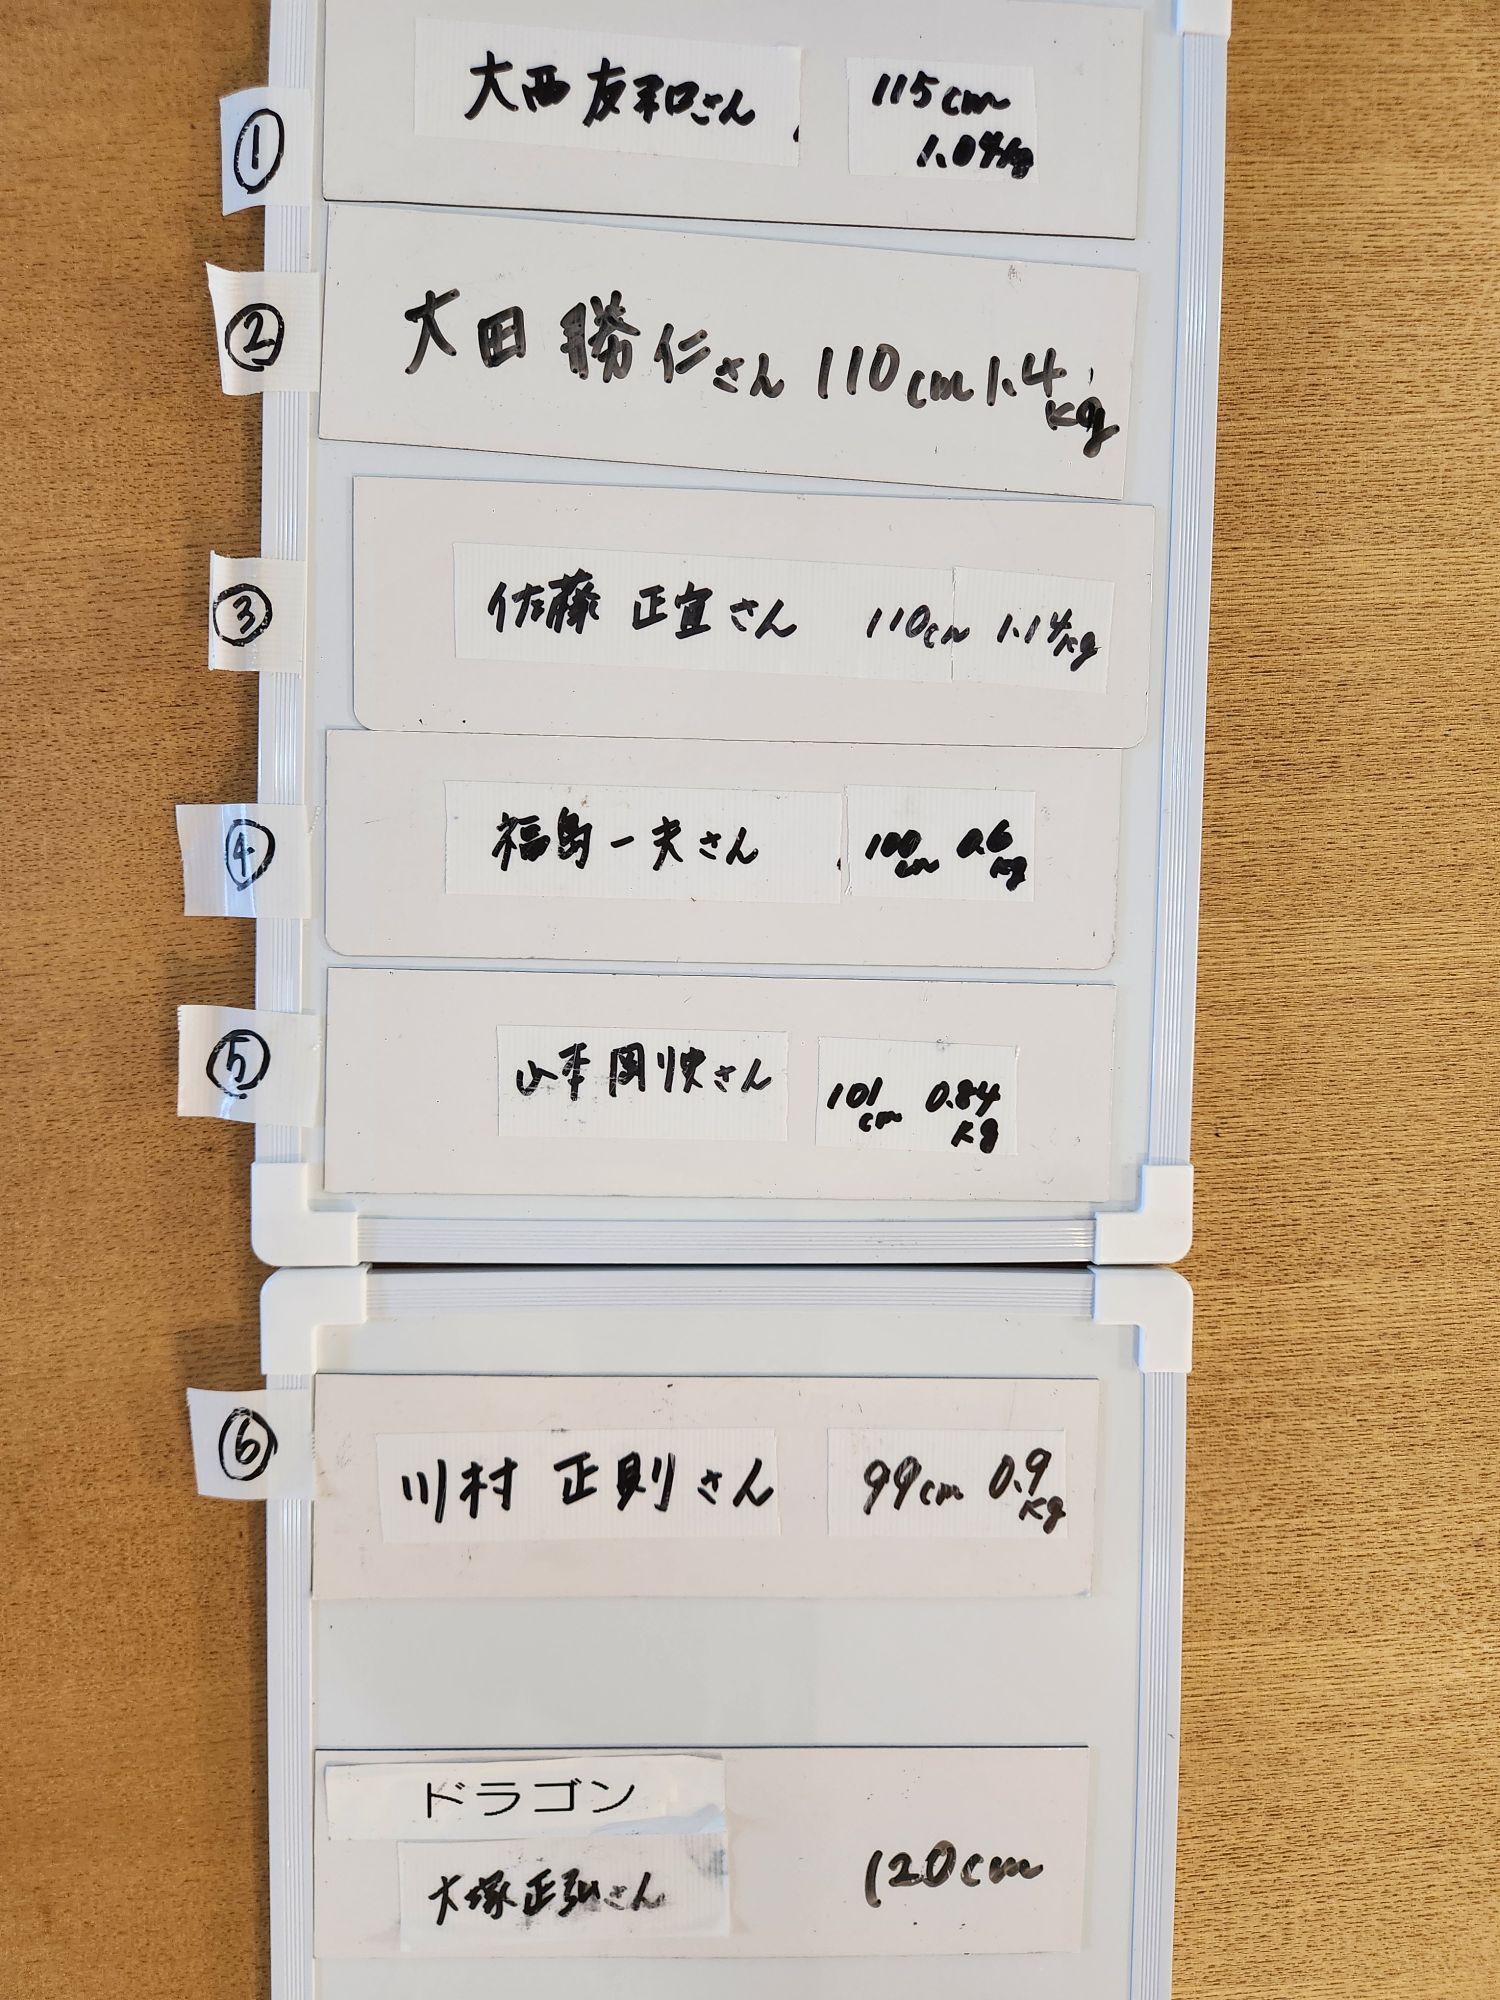 ① 大西友和さん 115cm
1.04kg
② 大田勝仁さん 110cm 1.4
kg
③ 佐藤 正宜さん 110cm 1.14kg
④ 福島一夫さん 100cm 0.6kg
⑤ 山本剛快さん 101cm 0.84kg
⑥ 川村 正則さん 99cm 0.9kg
ドラゴン
大塚正弘さん 120cm